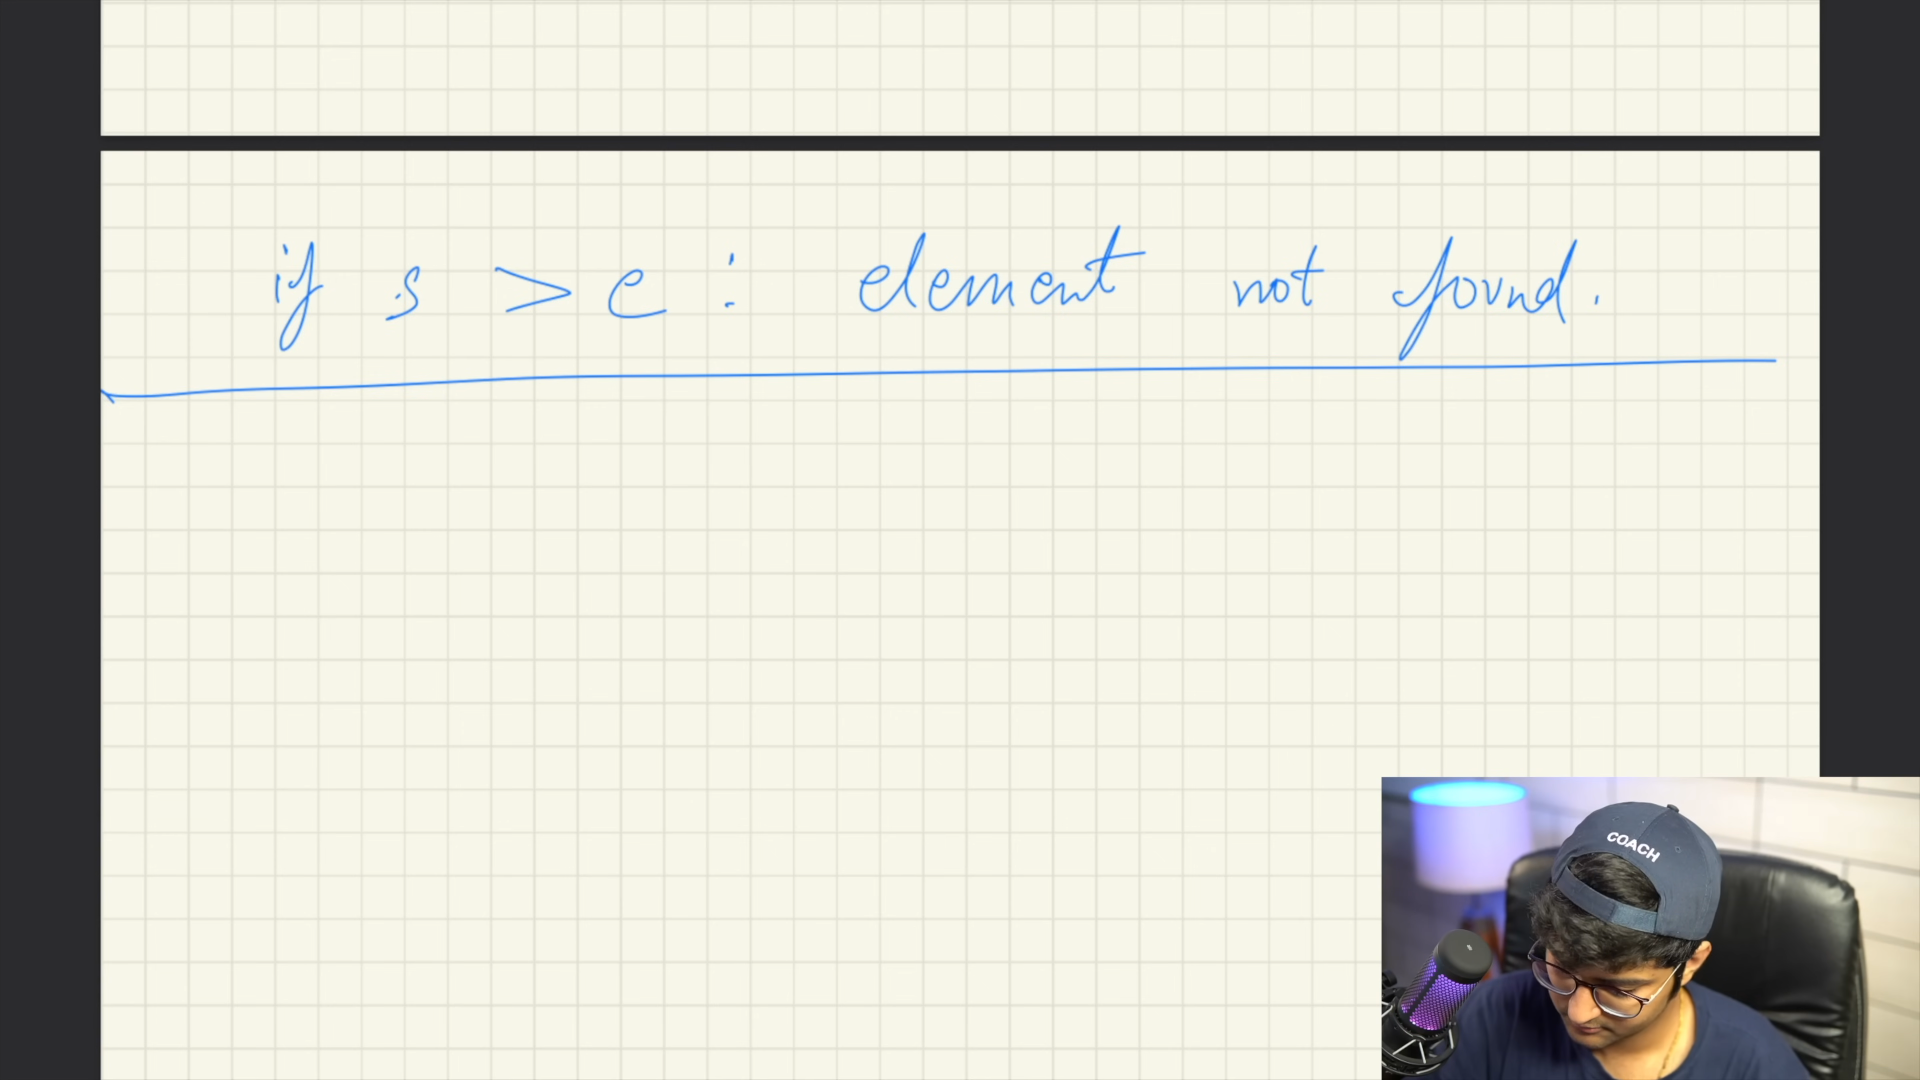 if s > e : element not found.
COACH